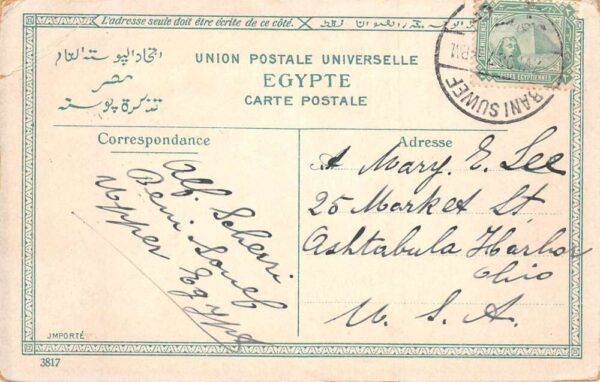 L'adresse seule doit être écrite de ce côté.
اتحاد البوستة العام
مصر
تذكرة بوستة
UNION POSTALE UNIVERSELLE
EGYPTE
CARTE POSTALE
BANI SUWEF
POSTES EGYPTIENNES
Correspondance
Adresse
Alf. Scherri
Beni Souef
Upper Egypt
A Mary. E. Lee
25 Market St
Ashtabula Harbor
Ohio
U. S. A.
JMPORTÉ
3817